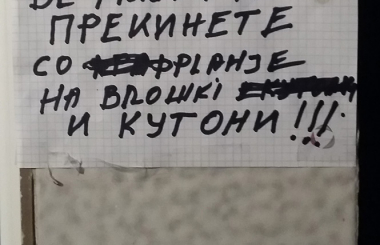 ВЕ
ПРЕКИНЕТЕ
СО ФРЛАЊЕ
НА ВЛОШКІ
И КУТОНИ!!!